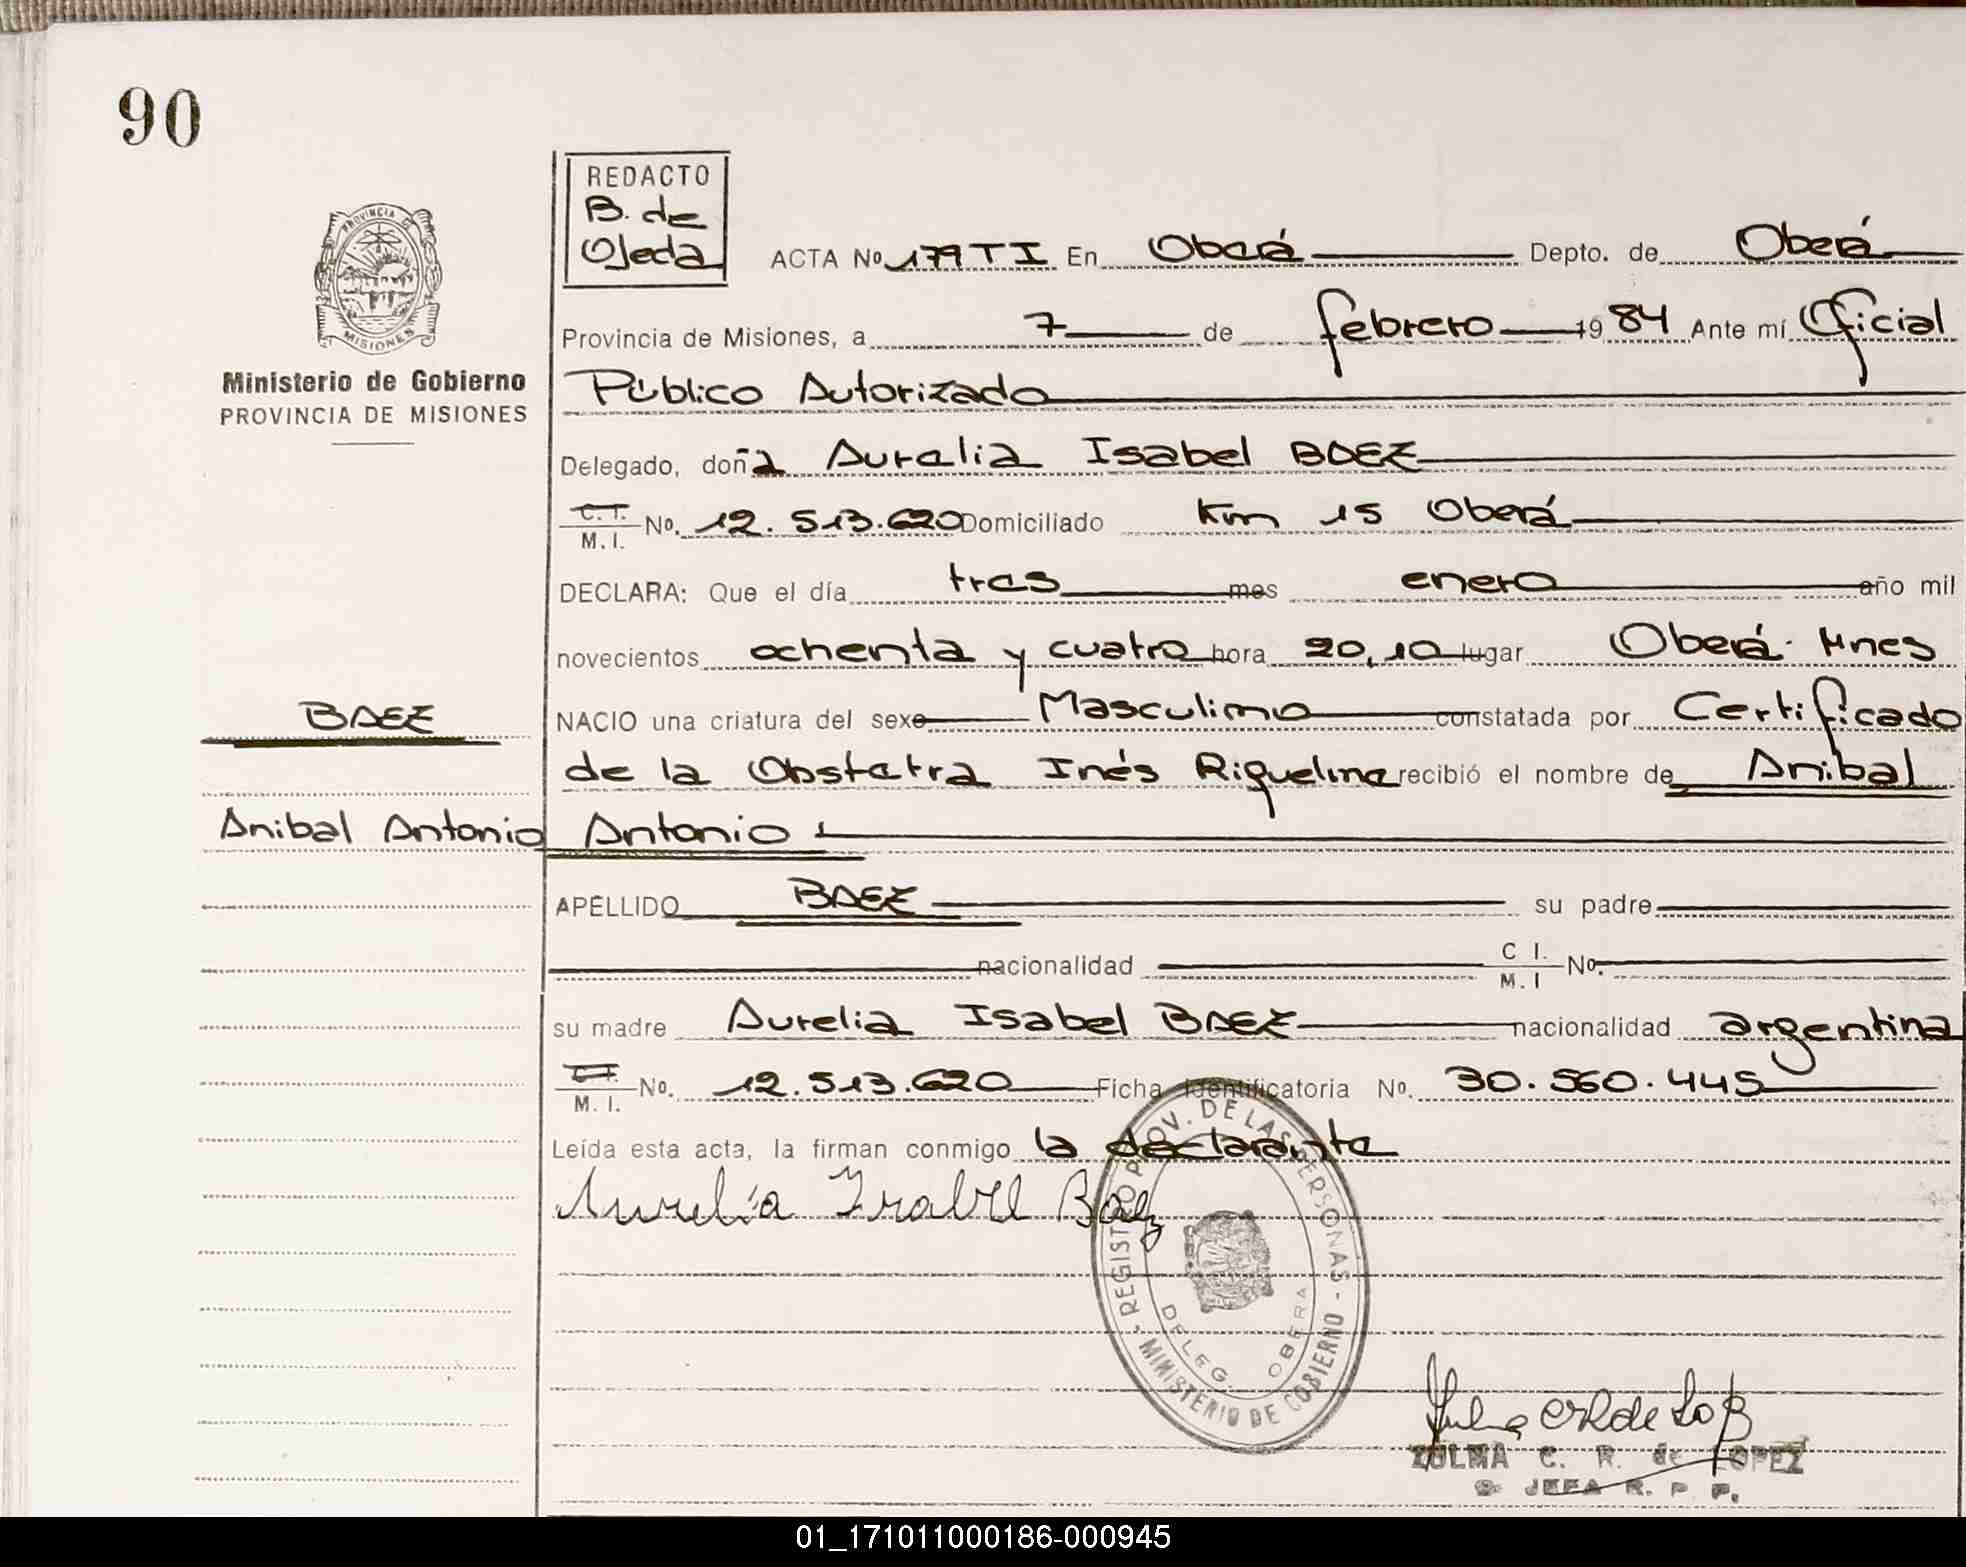 90
REDACTO
B. de
Ojeda
PROVINCIA DE
MISIONES
Ministerio de Gobierno
PROVINCIA DE MISIONES
ACTA No. 179 T I En Oberá Depto. de Oberá
Provincia de Misiones, a 7 de febrero 1984 Ante mí Oficial
Público Autorizado
Delegado, doña Aurelia Isabel BAEZ
C. I. M. I. No. 12.513.620 Domiciliado Km 15 Oberá
DECLARA: Que el día tres mes enero año mil
novecientos ochenta y cuatro hora 20,10 lugar Oberá - Mnes
BAEZ
NACIO una criatura del sexo Masculino constatada por Certificado
de la Obstetra Inés Riquelme recibió el nombre de Anibal
Anibal Antonio
Antonio
APELLIDO BAEZ su padre
nacionalidad C I. M. I No.
su madre Aurelia Isabel BAEZ nacionalidad argentina
M. I. No. 12.513.620 Ficha identificatoria No. 30.560.445
Leída esta acta, la firman conmigo la declarante
Aurelia Isabel Baez
REGISTRO PROV. DE LAS PERSONAS - MINISTERIO DE GOBIERNO
DELEG. OBERA
ZULMA C. R. de LOPEZ
JEFA R. P. P.
01_171011000186-000945